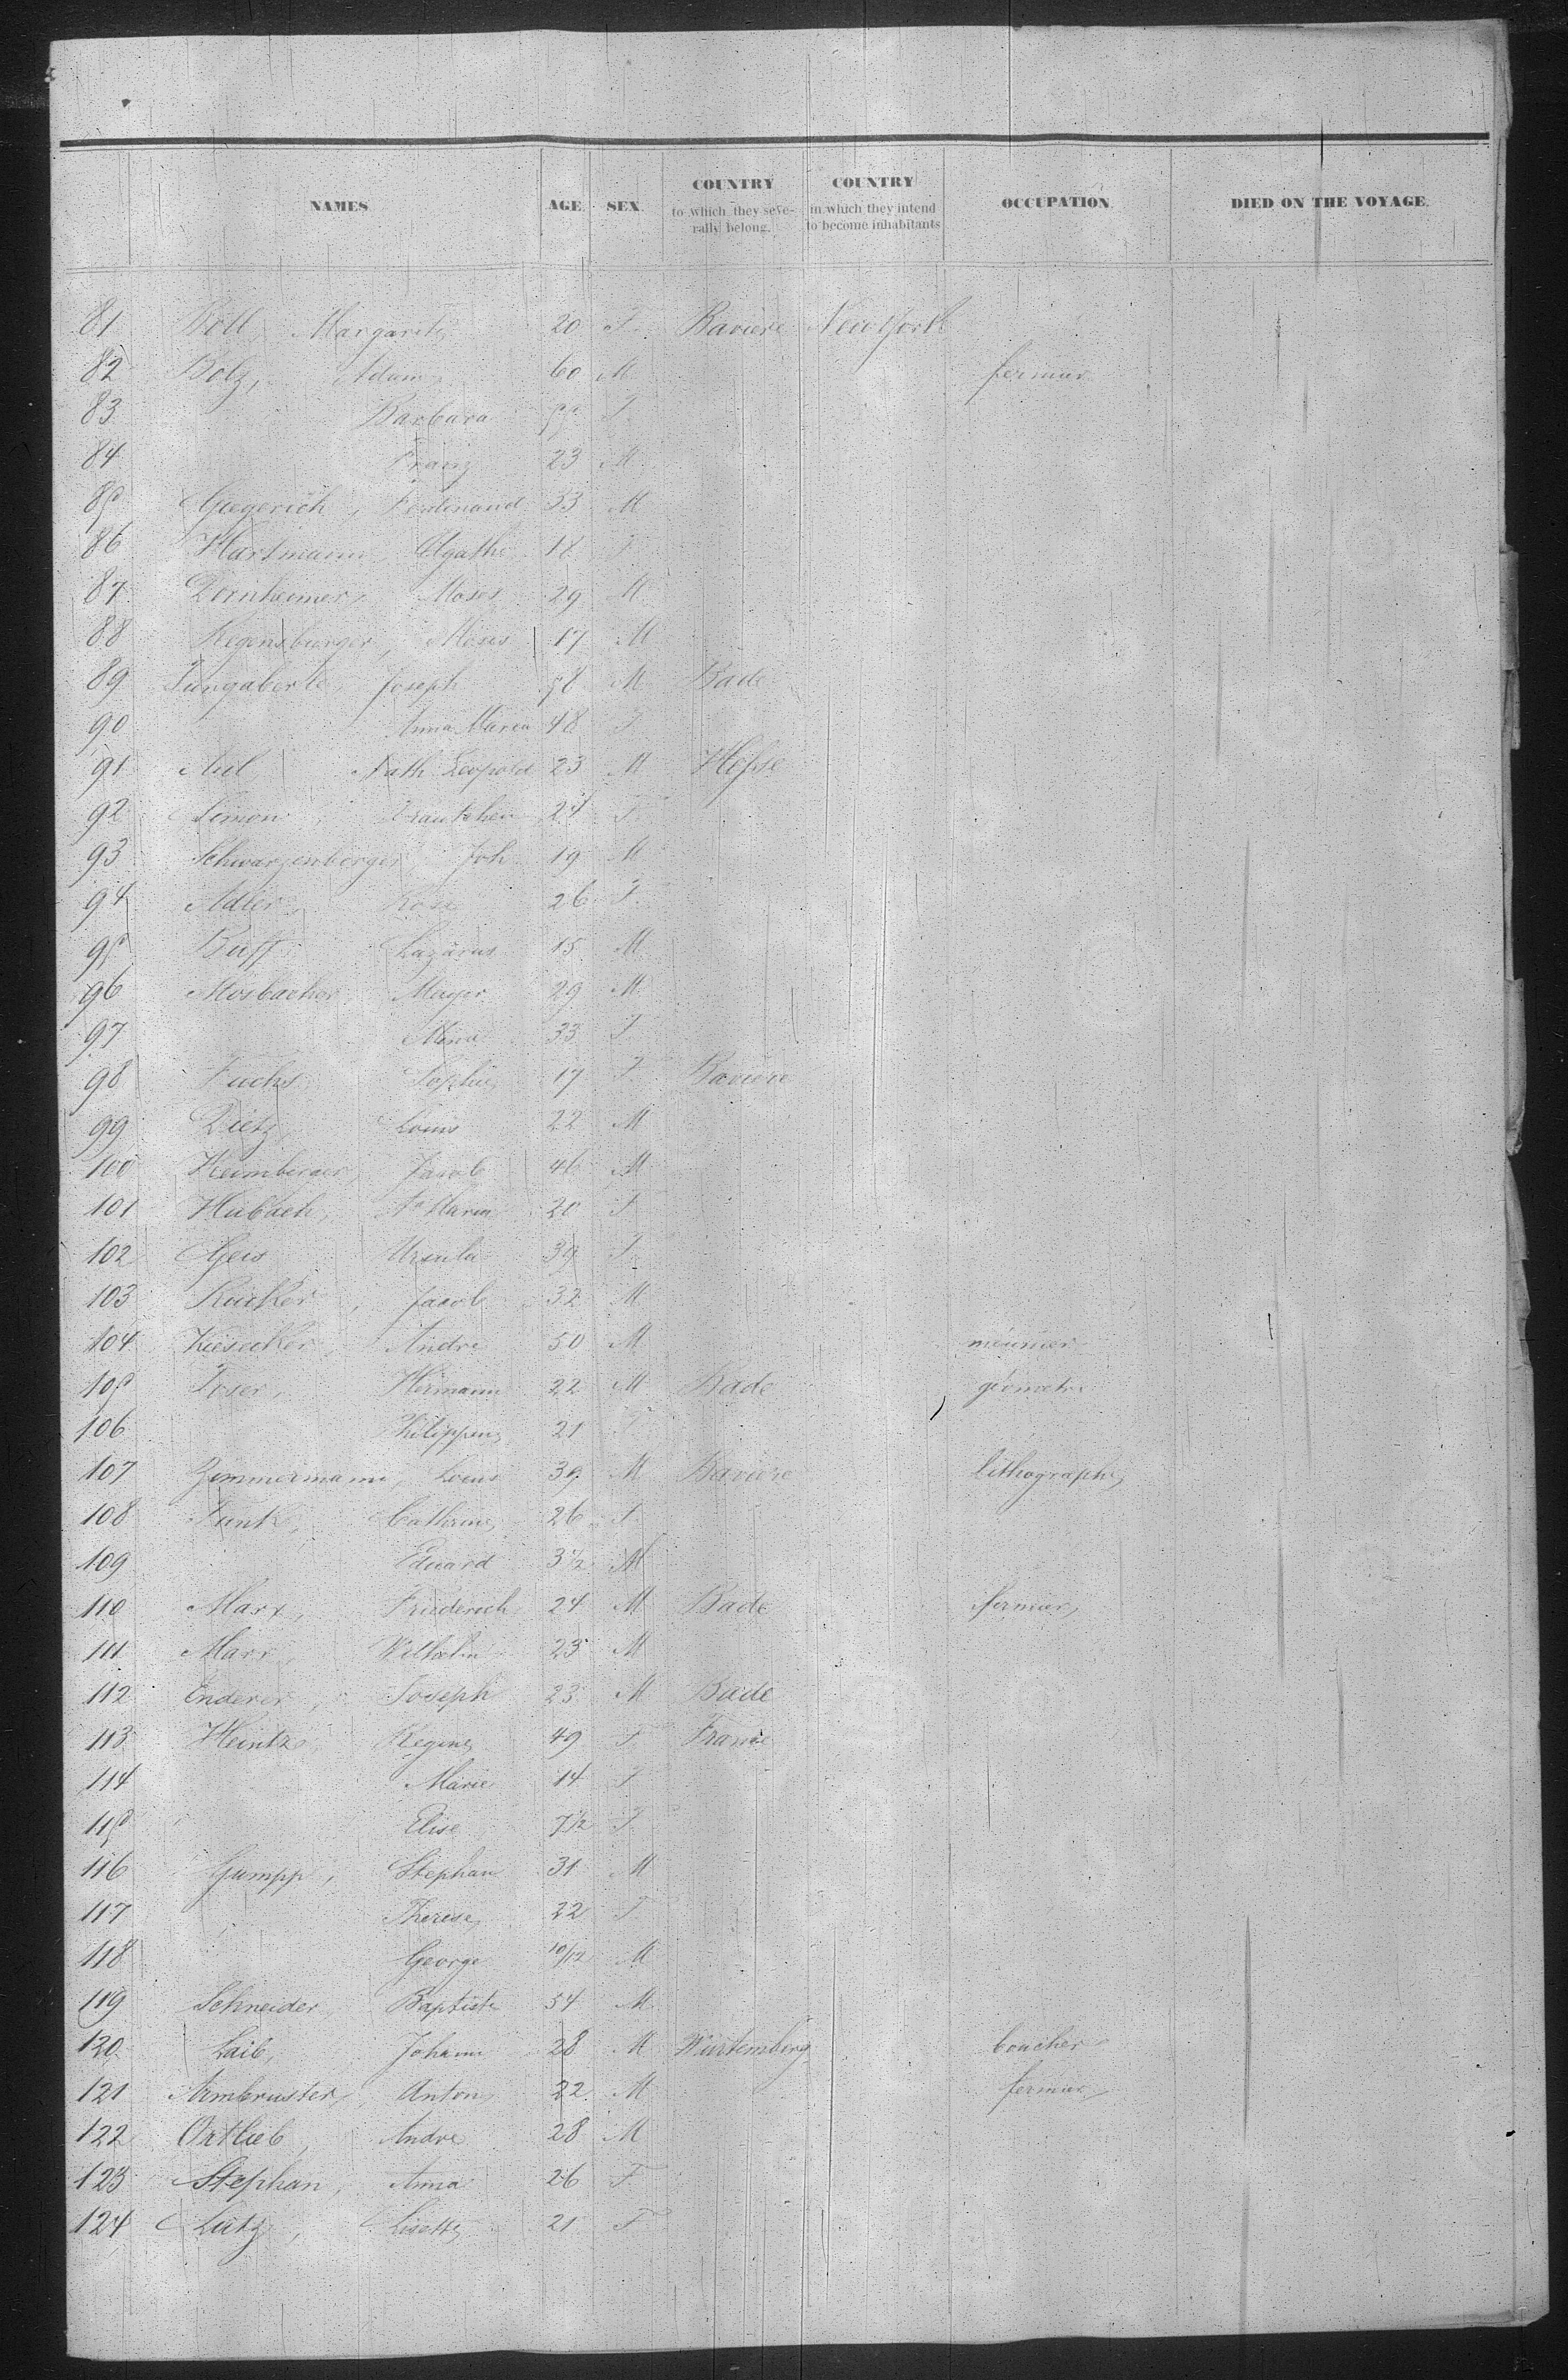 NAMES AGE. SEX. COUNTRY to which they severally belong. COUNTRY in which they intend to become inhabitants OCCUPATION DIED ON THE VOYAGE.
81 Boll, Margarite 20 F. Baviere New York
82 Bolz, Adam 60 M fermier
83 Barbara 55 F
84 Franz 23 M
85 Giegerich, Ferdinand 33 M
86 Hartmann, Agathe 18 F
87 Dornheimer, Moses 29 M
88 Regensburger, Moses 17 M
89 Joseph 58 M Bade
90 Anna Maria 48 F
91 Nath. Leopold 23 M Hesse
92 Simon, 24 F
93 Schwarzenberger, Joh. 19 M
94 Adler, Rose 26 F.
95 Buff Lazarus 15 M
96 Mosbacher, Mayer 29 M
97 Mina 33 F
98 Fuchs Sophie 17 F. Baviere
99 Dietz, Louis 22 M
100 Heimberger, Jacob 46 M
101 Hubach, Aa Maria 20 F
102 Geis Ursula 39 F.
103 Rucker, Jacob 32 M
104 Kiesecker, Andre 50 M meunier
105 Toser, Hermann 22 M Bade géometre
106 Philippine 21 F
107 Zimmermann, Louis 39 M Baviere lithographe
108 Funk, Catherine 26 F.
109 Eduard 3 1/2 M
110 Marx, Friederich 24 M Bade fermier
111 Marx, Wilhelm 23 M
112 Enderer, Joseph 23 M Bade
113 Heintz Regine 49 F. France
114 Marie 14 F
115 Elise 7 1/2 F.
116 Gumpp, Stephan 31 M
117 Therese 22 F
118 George 10/12 M
119 Schneider, Baptiste 54 M
120 Laib, Johann 28 M Würtemberg boucher
121 Armbruster, Anton 22 M fermier
122 Ortlieb, Andre 28 M
123 Stephan, Anna 26 F.
124 Lutz, Lisette 21 F